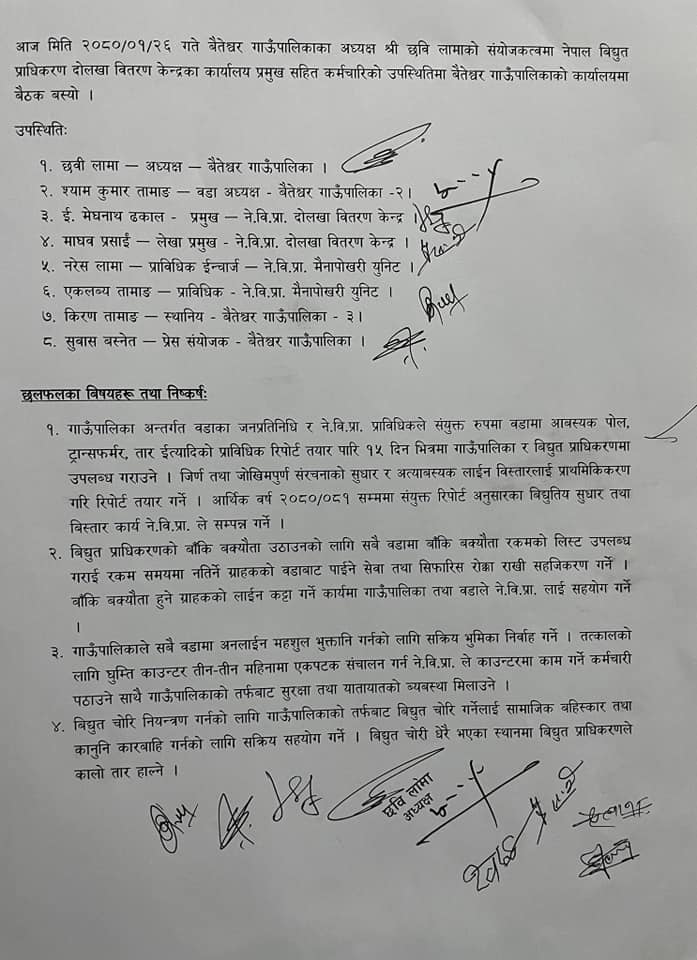 आज मिति २०८०/०१/२६ गते बैतेश्वर गाऊँपालिकाका अध्यक्ष श्री छवि लामाको संयोजकत्वमा नेपाल बिद्युत
प्राधिकरण दोलखा वितरण केन्द्रका कार्यालय प्रमुख सहित कर्मचारिको उपस्थितिमा बैतेश्वर गाऊँपालिकाको कार्यालयमा
बैठक बस्यो ।
उपस्थितिः
१. छवी लामा – अध्यक्ष – बैतेश्वर गाऊँपालिका ।
२. श्याम कुमार तामाङ – वडा अध्यक्ष - बैतेश्वर गाऊँपालिका -२।
३. ई. मेघनाथ ढकाल - प्रमुख – ने.वि.प्रा. दोलखा वितरण केन्द्र ।
४. माधव प्रसाईं – लेखा प्रमुख - ने.वि.प्रा. दोलखा वितरण केन्द्र ।
५. नरेस लामा – प्राविधिक ईन्चार्ज – ने.वि.प्रा. मैनापोखरी युनिट ।
६. एकलब्य तामाङ – प्राविधिक - ने.वि.प्रा. मैनापोखरी युनिट ।
७. किरण तामाङ – स्थानिय - बैतेश्वर गाऊँपालिका - ३।
८. सुवास बस्नेत – प्रेस संयोजक - बैतेश्वर गाऊँपालिका ।
छलफलका बिषयहरू तथा निष्कर्षः
१. गाऊँपालिका अन्तर्गत वडाका जनप्रतिनिधि र ने.वि.प्रा. प्राविधिकले संयुक्त रुपमा वडामा आबस्यक पोल,
ट्रान्सफर्मर, तार ईत्यादिको प्राविधिक रिपोर्ट तयार पारि १५ दिन भित्रमा गाऊँपालिका र बिद्युत प्राधिकरणमा
उपलब्ध गराउने । जिर्ण तथा जोखिमपुर्ण संरचनाको सुधार र अत्याबस्यक लाईन विस्तारलाई प्राथमिकिकरण
गरि रिपोर्ट तयार गर्ने । आर्थिक वर्ष २०८०/०८१ सम्ममा संयुक्त रिपोर्ट अनुसारका बिद्युतिय सुधार तथा
बिस्तार कार्य ने.वि.प्रा. ले सम्पन्न गर्ने ।
२. बिद्युत प्राधिकरणको बाँकि बक्यौता उठाउनको लागि सबै वडामा बाँकि बक्यौता रकमको लिस्ट उपलब्ध
गराई रकम समयमा नतिर्ने ग्राहकको वडाबाट पाईने सेवा तथा सिफारिस रोक्का राखी सहजिकरण गर्ने ।
बाँकि बक्यौता हुने ग्राहकको लाईन कट्टा गर्ने कार्यमा गाऊँपालिका तथा वडाले ने.वि.प्रा. लाई सहयोग गर्ने
।
३. गाऊँपालिकाले सबै वडामा अनलाईन महशुल भुक्तानि गर्नको लागि सक्रिय भुमिका निर्वाह गर्ने । तत्कालको
लागि घुम्ति काउन्टर तीन-तीन महिनामा एकपटक संचालन गर्न ने.वि.प्रा. ले काउन्टरमा काम गर्ने कर्मचारी
पठाउने साथै गाऊँपालिकाको तर्फबाट सुरक्षा तथा यातायातको ब्यबस्था मिलाउने ।
४. बिद्युत चोरि नियन्त्रण गर्नको लागि गाऊँपालिकाको तर्फबाट बिद्युत चोरि गर्नेलाई सामाजिक बहिस्कार तथा
कानुनि कारबाहि गर्नको लागि सक्रिय सहयोग गर्ने । बिद्युत चोरी धेरै भएका स्थानमा बिद्युत प्राधिकरणले
कालो तार हाल्ने ।
छवि लामा
अध्यक्ष